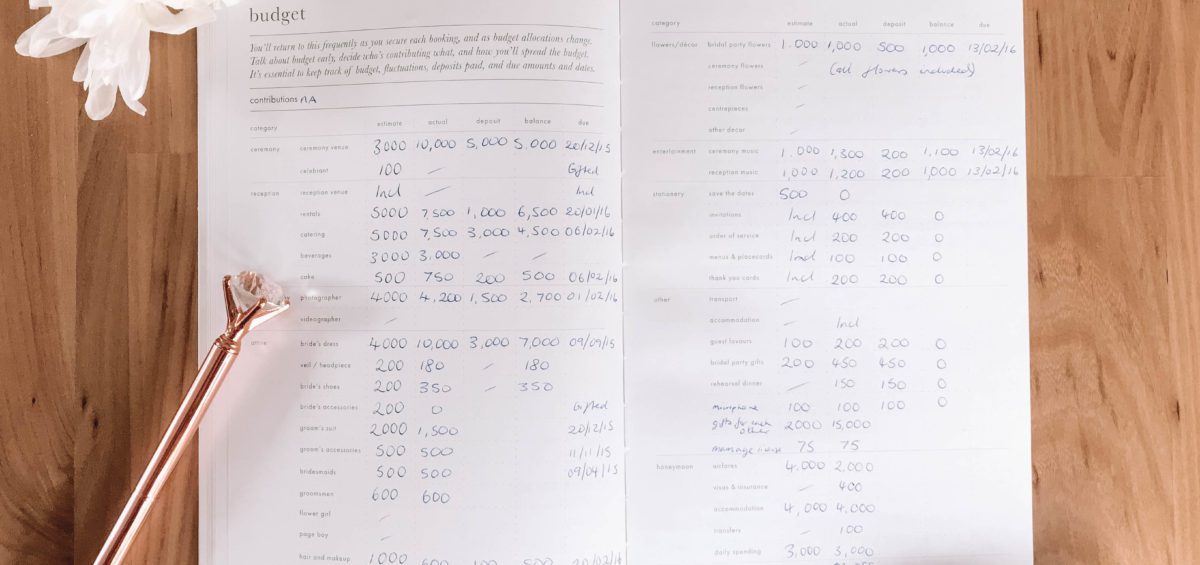 budget
You'll return to this frequently as you secure each booking, and as budget allocations change.
Talk about budget early, decide who's contributing what, and how you'll spread the budget.
It's essential to keep track of budget, fluctuations, deposits paid, and due amounts and dates.
contributions NA
category estimate actual deposit balance due
ceremony ceremony venue 3000 10,000 5,000 5,000 20/12/15
celebrant 100 – Gifted
reception reception venue Incl – Incl
rentals 5000 7,500 1,000 6,500 20/01/16
catering 5000 7,500 3,000 4,500 06/02/16
beverages 3000 3,000 – –
cake 500 750 200 500 06/02/16
photographer 4000 4,200 1,500 2,700 01/02/16
videographer –
attire bride's dress 4000 10,000 3,000 7,000 09/09/15
veil / headpiece 200 180 – 180
bride's shoes 200 350 – 350
bride's accessories 200 0 Gifted
groom's suit 2000 1,500 20/12/15
groom's accessories 500 500 11/11/15
bridesmaids 500 500 09/04/15
groomsmen 600 600
flower girl –
page boy –
hair and makeup 1000 600 100 500 20/02/16
category estimate actual deposit balance due
flowers/décor bridal party flowers 1.000 1,000 500 1,000 13/02/16
ceremony flowers – (all flowers included)
reception flowers –
centrepieces –
other decor –
entertainment ceremony music 1.000 1,300 200 1,100 13/02/16
reception music 1,000 1,200 200 1,000 13/02/16
stationery save the dates 500 0
invitations Incl 400 400 0
order of service Incl 200 200 0
menus & placecards Incl 100 100 0
thank you cards Incl 200 200 0
other transport –
accommodation – Incl
guest favours 100 200 200 0
bridal party gifts 200 450 450 0
rehearsal dinner – 150 150 0
microphone 100 100 100 0
gifts for each other 2000 15,000
marriage license 75 75
honeymoon airfares 4.000 2,000
visas & insurance – 400
accommodation 4,000 4,000
transfers – 100
daily spending 3,000 3,000